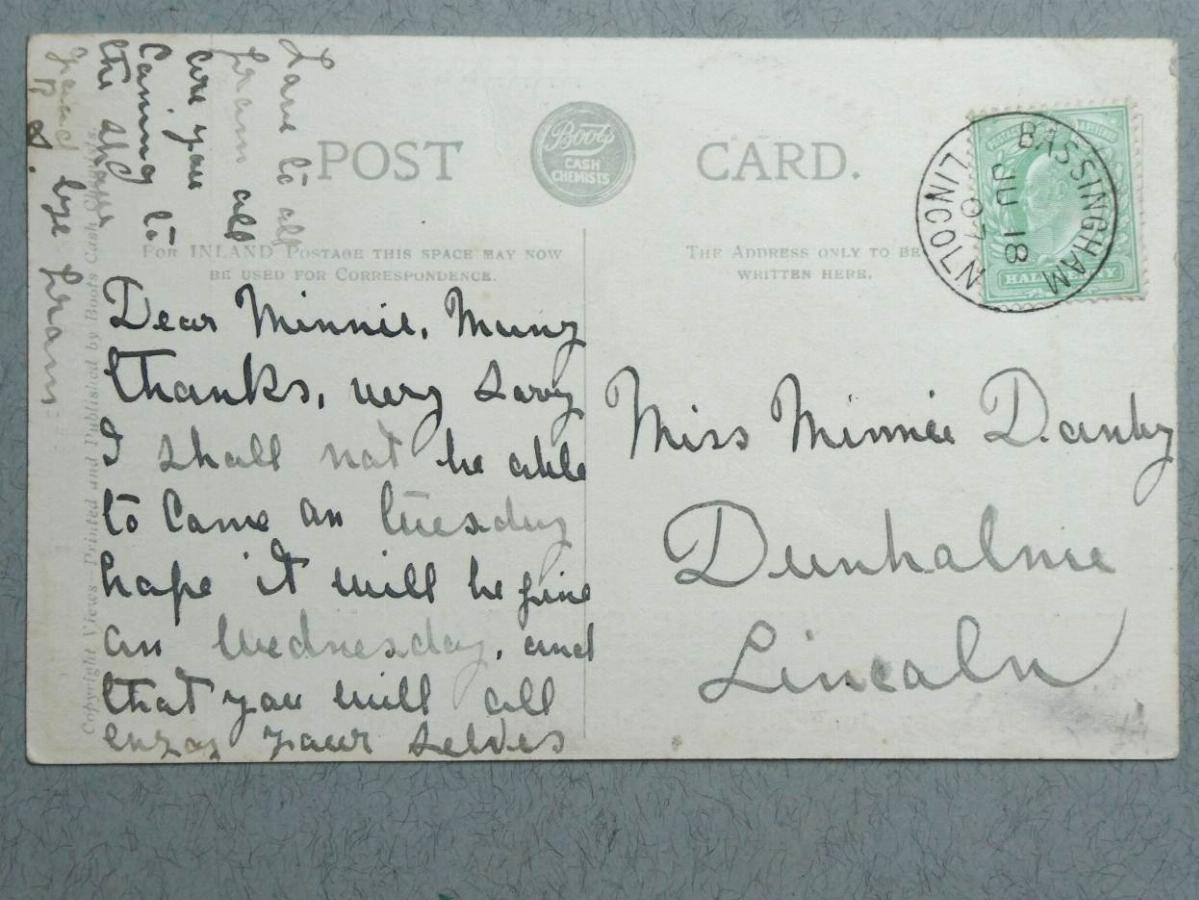 POST
Boots
CASH
CHEMISTS
CARD.
FOR INLAND POSTAGE THIS SPACE MAY NOW
BE USED FOR CORRESPONDENCE.
THE ADDRESS ONLY TO BE
WRITTEN HERE.
BASSINGHAM
JU 18
07
LINCOLN
POSTAGE
HALFPENNY
Dear Minnie, Many
thanks, very sorry
I shall not be able
to come on tuesday
hope it will be fine
on Wednesday, and
that you will all
enjoy your selves
Love to all
from all
are you
Coming to
the show
good bye from
B D.
Miss Minnie Danby
Dunholme
Lincoln
Copyright Views—Printed and Published by Boots Cash Chemists.